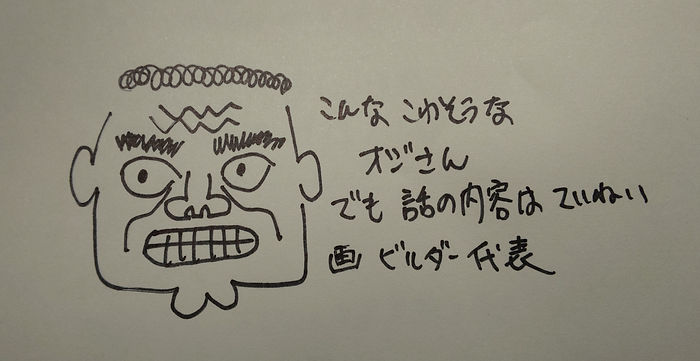 こんな こわそうな
オジさん
でも 話の内容は ていねい
画 ビルダー代表